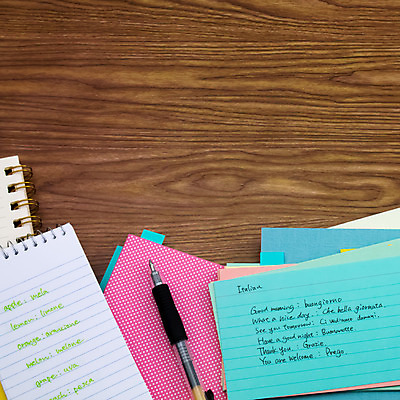 apple : mela
lemon : limone
orange : arancione
melon : melone
grape : uva
peach : pesca
Italian
Good morning : buongiorno
What a nice day. : Che bella giornata.
See you tomorrow : Ci vediamo domani.
Have a good night : Buonanotte.
Thank you. : Grazie.
You are welcome. : Prego.